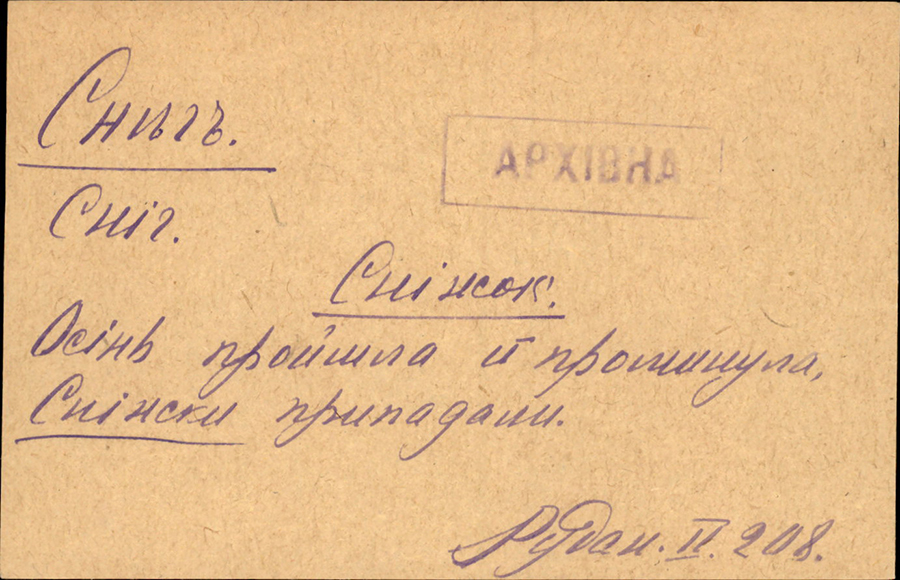 Снѣгъ.
АРХІВНА
Сніг.
Сніжок.
Осінь пройшла й проминула,
Сніжки припадали.
Рудан. II. 208.